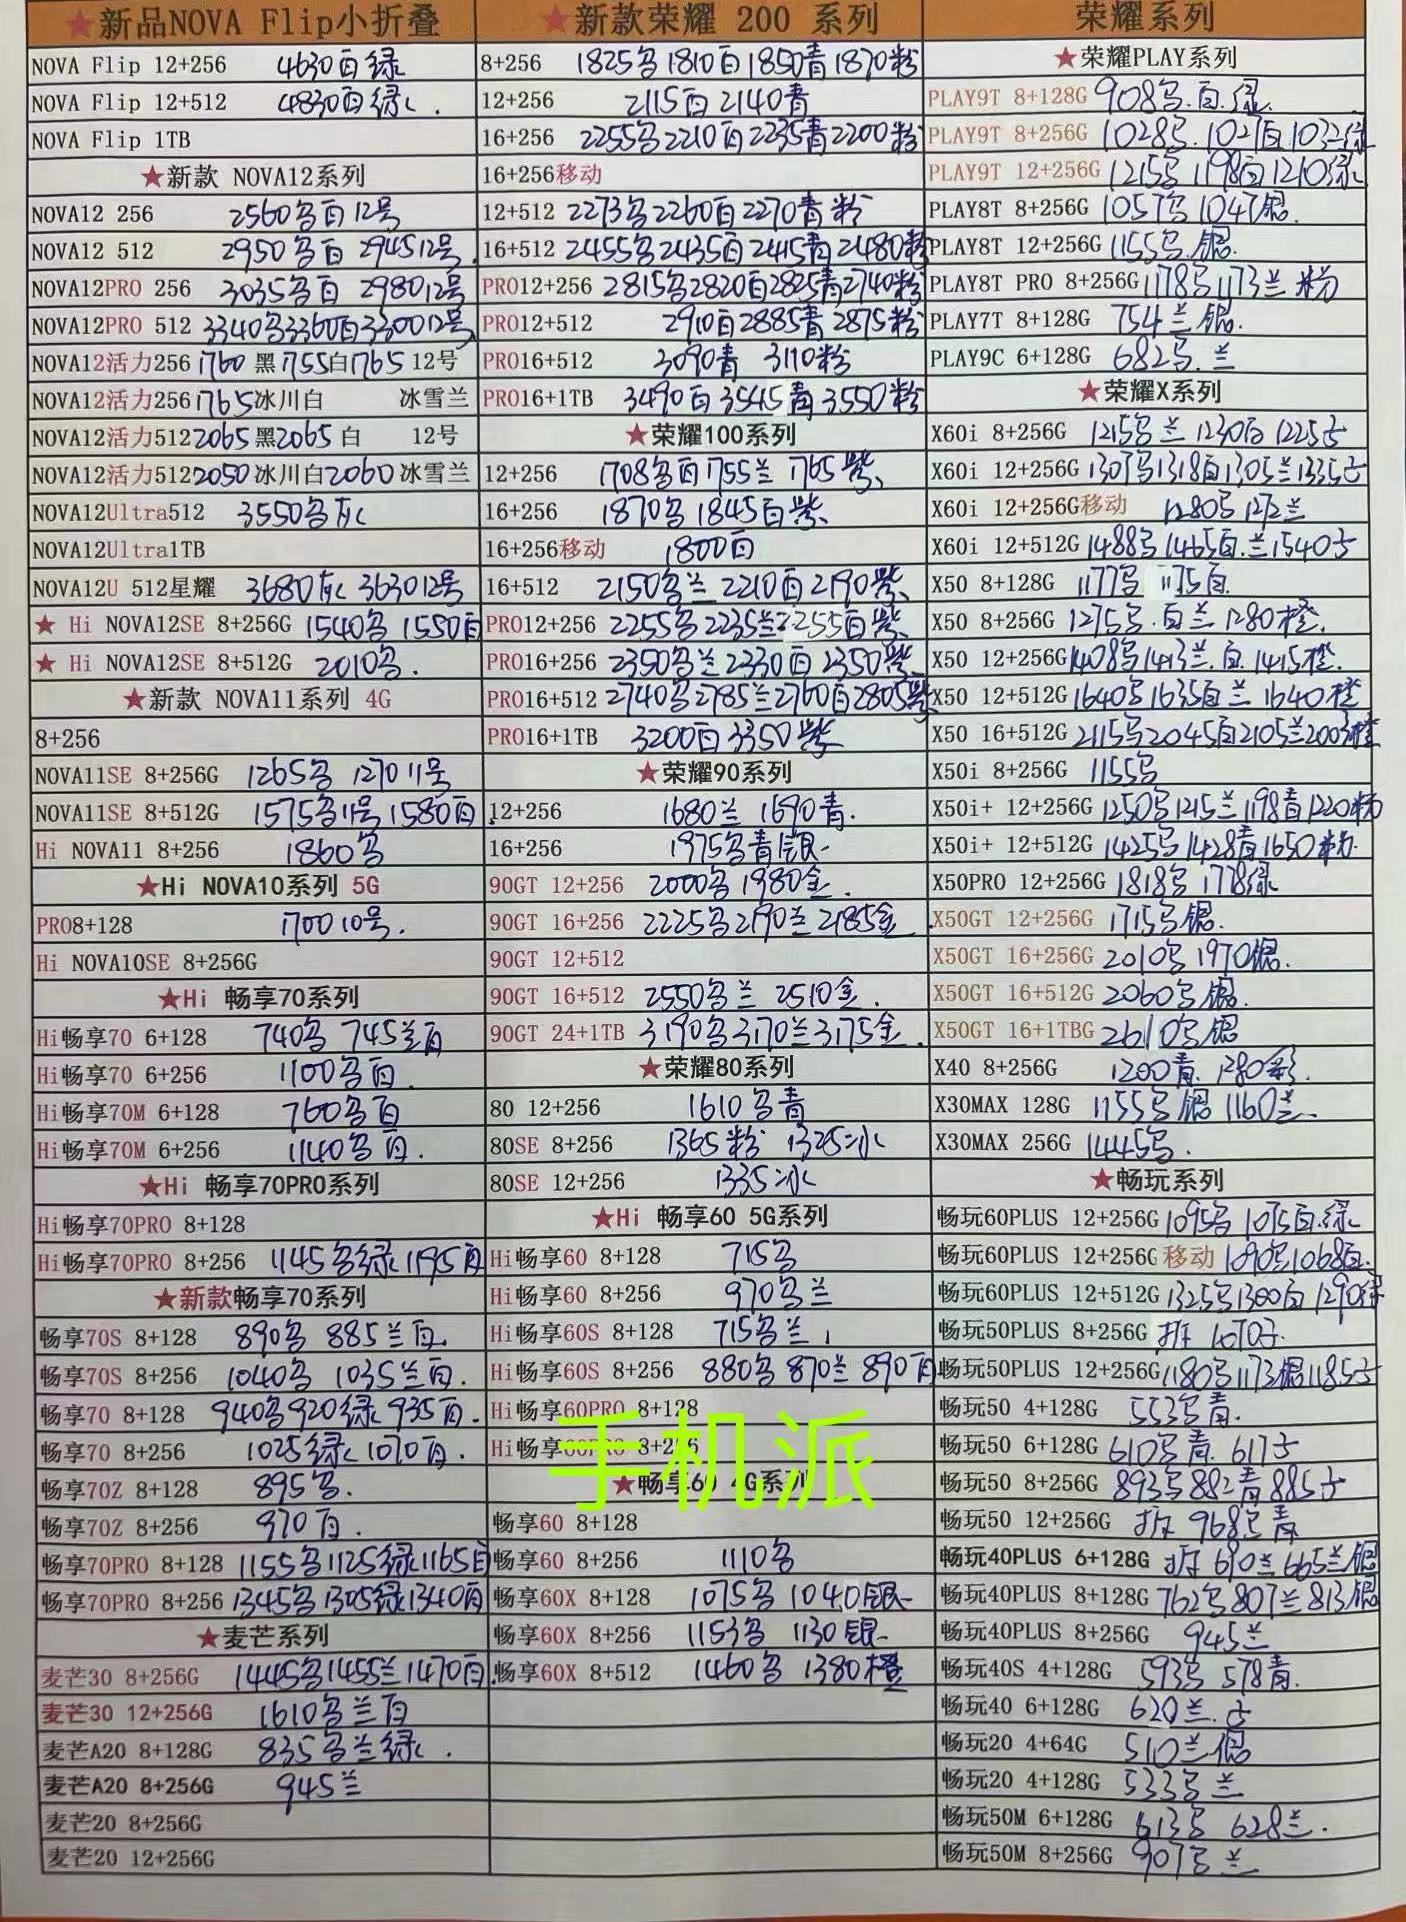 ★新品NOVA Flip小折叠
NOVA Flip 12+256 4630白绿
NOVA Flip 12+512 4830白绿.
NOVA Flip 1TB
★新款 NOVA12系列
NOVA12 256 2560名白12号
NOVA12 512 2950名白 294512号
NOVA12PRO 256 3035名白 298012号
NOVA12PRO 512 3340名3360白330012号
NOVA12活力256 1760 黑1755白1765 12号
NOVA12活力256 1765冰川白 冰雪兰
NOVA12活力512 2065黑2065白 12号
NOVA12活力512 2050冰川白2060冰雪兰
NOVA12Ultra512 3550名灰
NOVA12Ultra1TB
NOVA12U 512星耀 3680灰 363012号
★ Hi NOVA12SE 8+256G 1540名 1550白
★ Hi NOVA12SE 8+512G 2010名.
★新款 NOVA11系列 4G
8+256
NOVA11SE 8+256G 1265名 127011号
NOVA11SE 8+512G 1575名11号1580白.
Hi NOVA11 8+256 1860名
★Hi NOVA10系列 5G
PRO8+128 170010号.
Hi NOVA10SE 8+256G
★Hi 畅享70系列
Hi畅享70 6+128 740名 745兰白
Hi畅享70 6+256 1100名白.
Hi畅享70M 6+128 760名白
Hi畅享70M 6+256 1140名白.
★Hi 畅享70PRO系列
Hi畅享70PRO 8+128
Hi畅享70PRO 8+256 1145名绿1195白
★新款畅享70系列
畅享70S 8+128 890名 885兰白.
畅享70S 8+256 1040名 1035兰白.
畅享70 8+128 940名920绿935白.
畅享70 8+256 1025绿1070白.
畅享70Z 8+128 895名.
畅享70Z 8+256 970白.
畅享70PRO 8+128 1155名1125绿1165白
畅享70PRO 8+256 1345名1305绿1340白
★麦芒系列
麦芒30 8+256G 1445名1455兰1470白.
麦芒30 12+256G 1610名兰白
麦芒A20 8+128G 835名兰绿.
麦芒A20 8+256G 945兰
麦芒20 8+256G
麦芒20 12+256G
★新款荣耀 200 系列
8+256 1825名1810白1850青1870粉
12+256 2115白2140青
16+256 2255名2210白2235青2200粉
16+256移动
12+512 2273名2260白2270青粉
16+512 2455名2435白2415青2480粉
PRO12+256 2815名2820白2825青2740粉
PRO12+512 2910白2885青2875粉
PRO16+512 3090青 3110粉
PRO16+1TB 3490白3545青3550粉
★荣耀100系列
12+256 1708名白1755兰1765紫.
16+256 1870名1845白紫.
16+256移动 1800白
16+512 2150名兰2210白2190紫.
PRO12+256 2255名2235兰2255白紫.
PRO16+256 2350名兰2330白2350紫.
PRO16+512 2740名2785兰2760白2805紫
PRO16+1TB 3200白3350紫
★荣耀90系列
12+256 1680兰 1690青.
16+256 1975名青银
90GT 12+256 2000名1980金.
90GT 16+256 2225名2190兰2185金.
90GT 12+512
90GT 16+512 2550名兰 2510金.
90GT 24+1TB 3190名3170兰3175金.
★荣耀80系列
80 12+256 1610名青
80SE 8+256 1365粉 1325冰
80SE 12+256 1335冰
★Hi 畅享60 5G系列
Hi畅享60 8+128 715名
Hi畅享60 8+256 970名兰
Hi畅享60S 8+128 715名兰
Hi畅享60S 8+256 880名870兰890白
Hi畅享60PRO 8+128
Hi畅享60PRO 8+256
手机派
★畅享60 4G系列
畅享60 8+128
畅享60 8+256 1110名
畅享60X 8+128 1075名1040银
畅享60X 8+256 1153名 1130银
畅享60X 8+512 1460名 1380橙
荣耀系列
★荣耀PLAY系列
PLAY9T 8+128G 908名.白.绿.
PLAY9T 8+256G 1028名.1027白1032绿
PLAY9T 12+256G 1215名1198白1210绿
PLAY8T 8+256G 1057名1047银.
PLAY8T 12+256G 1155名.银.
PLAY8T PRO 8+256G 1178名1173兰 粉
PLAY7T 8+128G 754兰银.
PLAY9C 6+128G 682名.兰
★荣耀X系列
X60i 8+256G 1215名兰1230白1225
X60i 12+256G 1307名1318白1305兰1335
X60i 12+256G移动 1280名1272兰
X60i 12+512G 1488名1465白.兰1540
X50 8+128G 1177名 1175白.
X50 8+256G 1275名.白兰1280橙.
X50 12+256G 1408名1413兰.白.1415橙.
X50 12+512G 1640名1635白兰1640橙
X50 16+512G 2115名2045白2105兰2003橙
X50i 8+256G 1155名
X50i+ 12+256G 1250名1215兰1198青1220粉
X50i+ 12+512G 1425名1428青1650粉.
X50PRO 12+256G 1818名1778绿
X50GT 12+256G 1715名银.
X50GT 16+256G 2010名1970银.
X50GT 16+512G 2060名银.
X50GT 16+1TBG 2610名银
X40 8+256G 1200青.1280彩.
X30MAX 128G 1155名银1160兰.
X30MAX 256G 1445名.
★畅玩系列
畅玩60PLUS 12+256G 1095名1075白.绿
畅玩60PLUS 12+256G 移动 1090名1068白.
畅玩60PLUS 12+512G 1325名1300白1290绿
畅玩50PLUS 8+256G 1070
畅玩50PLUS 12+256G 1180名1173银1185
畅玩50 4+128G 553名青.
畅玩50 6+128G 610名青.617
畅玩50 8+256G 893名882青885
畅玩50 12+256G 968名青
畅玩40PLUS 6+128G 690兰665兰银
畅玩40PLUS 8+128G 762名807兰813银
畅玩40PLUS 8+256G 945兰
畅玩40S 4+128G 593名578青.
畅玩40 6+128G 620兰.
畅玩20 4+64G 510兰银
畅玩20 4+128G 533名兰
畅玩50M 6+128G 613名 628兰.
畅玩50M 8+256G 907名兰